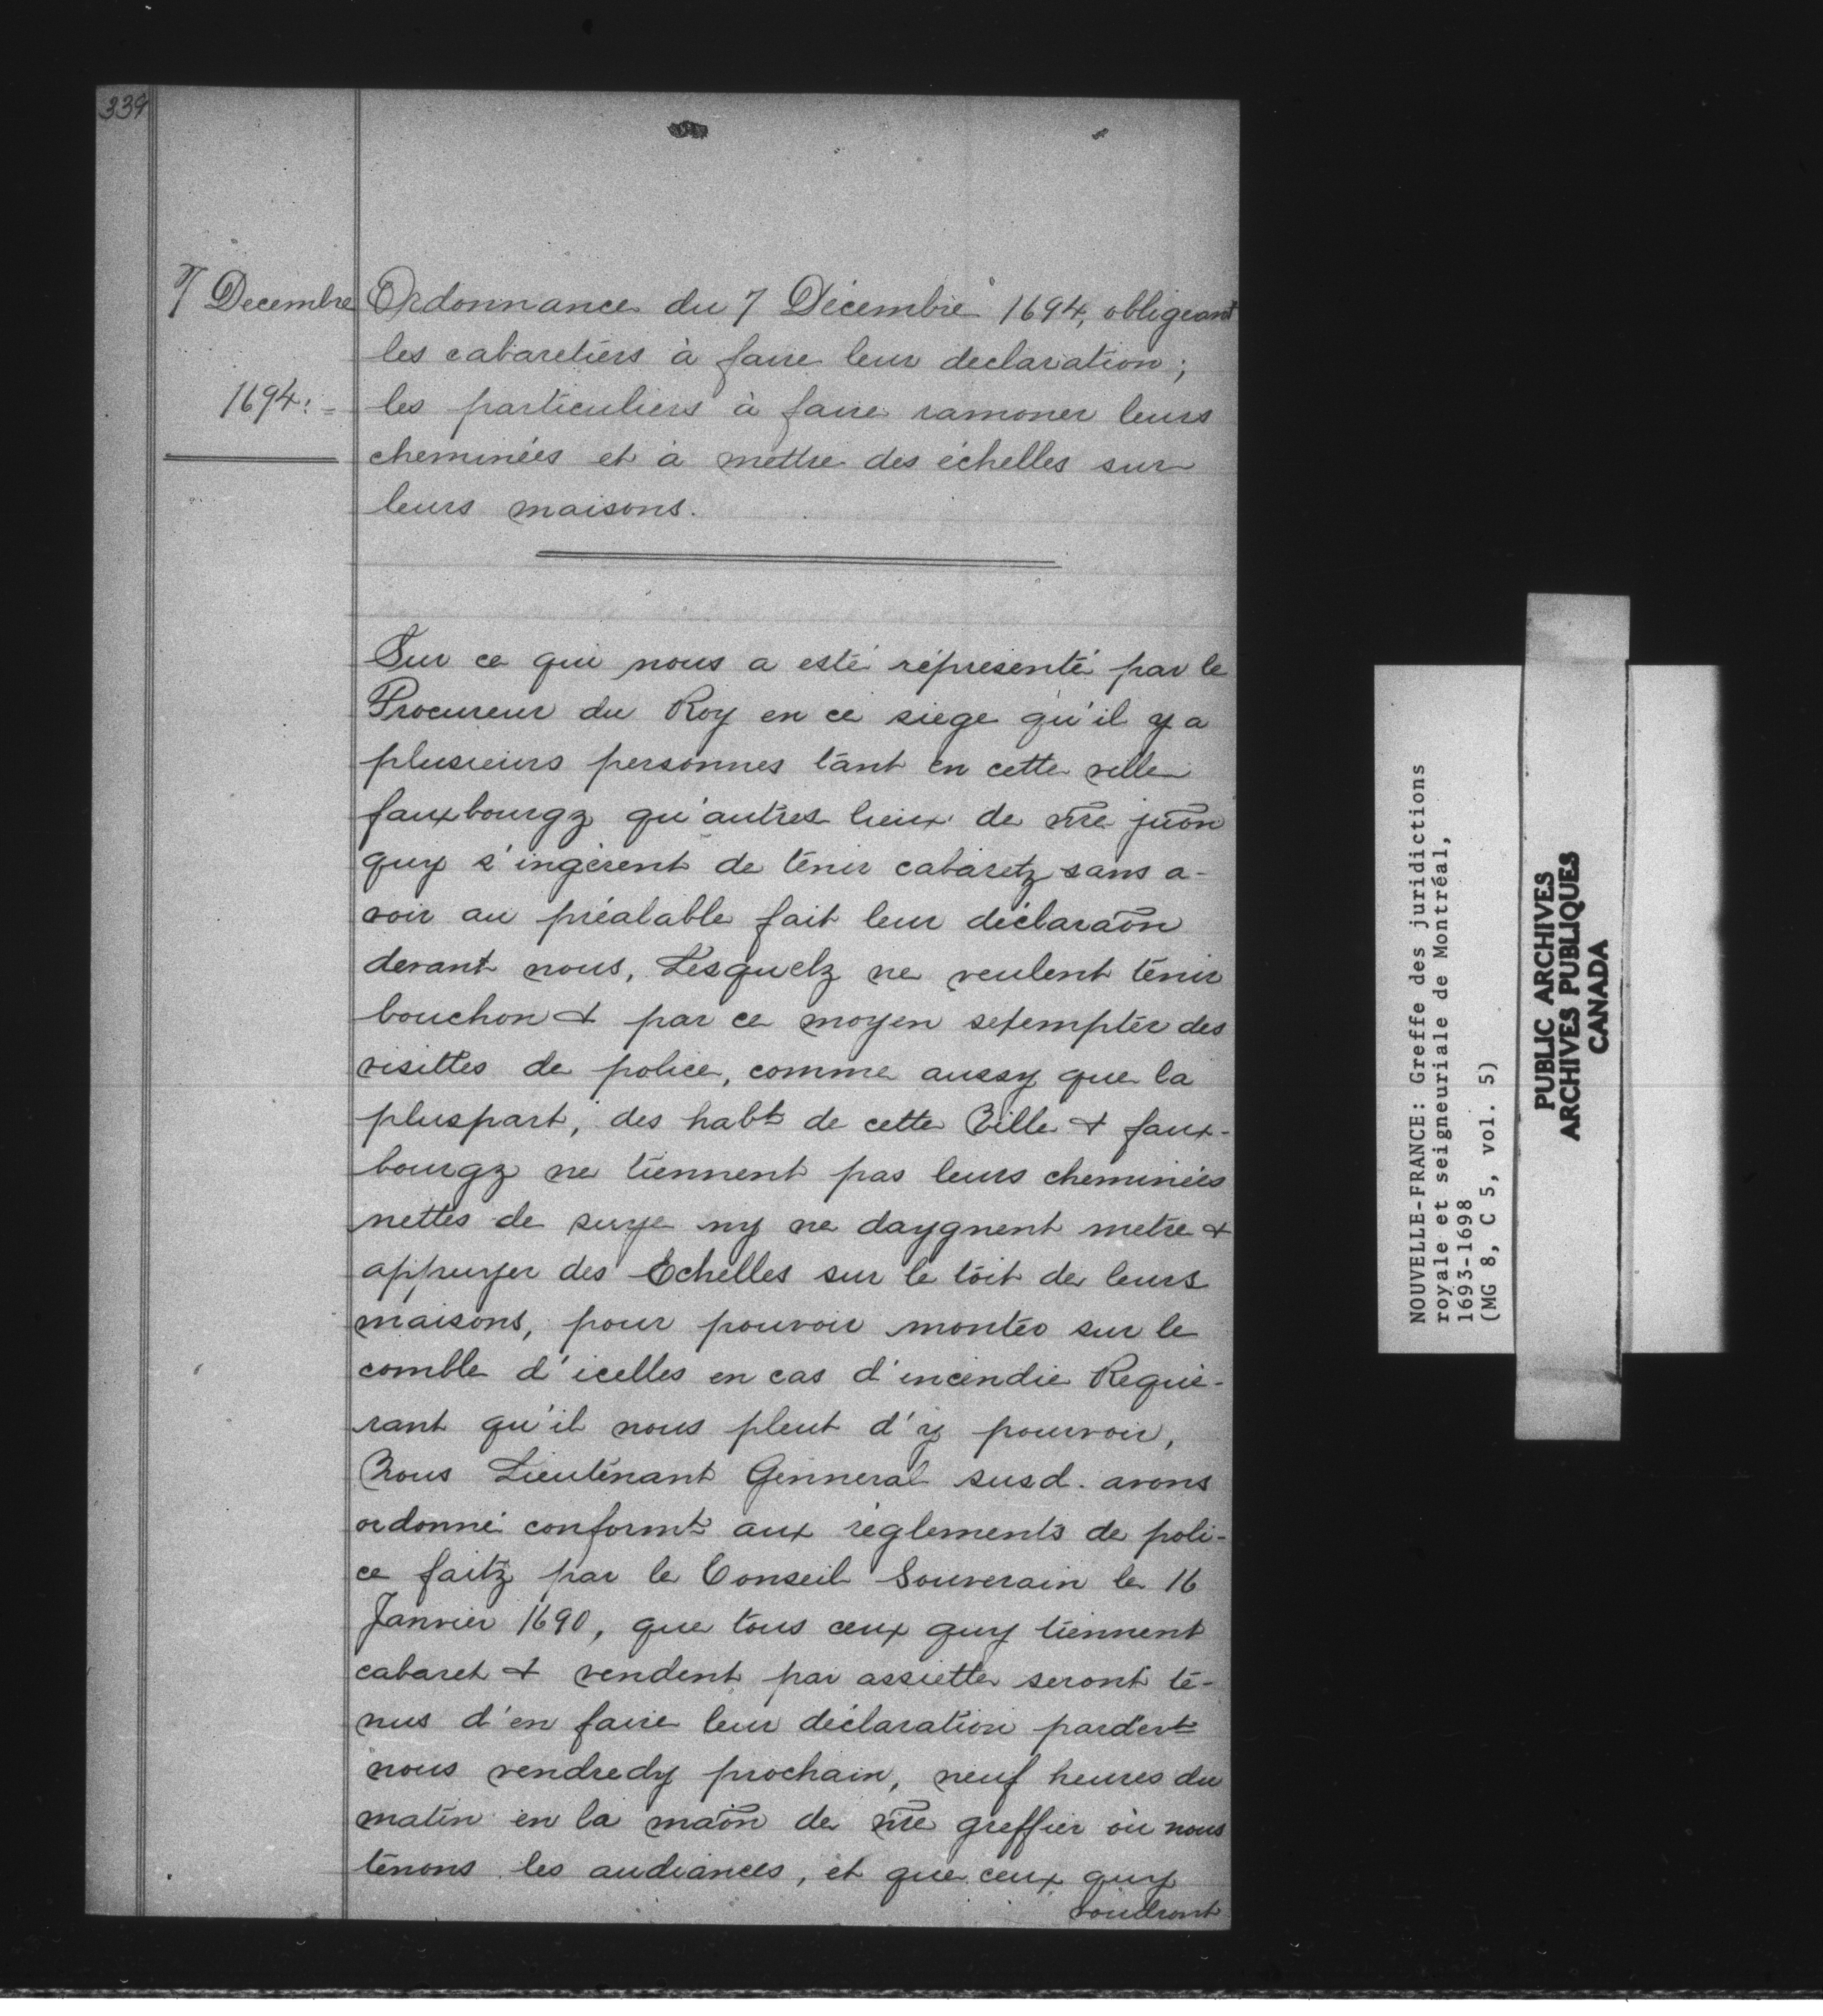 339
7 Decembre
1694:=
Ordonnance du 7 Décembre 1694, obligeant
les cabaretiers à faire leur declaration;
les particuliers à faire ramoner leurs
cheminées et à mettre des échelles sur
leurs maisons.
Sur ce qui nous a esté réprésenté par le
Procureur du Roy en ce siege qu'il y a
plusieurs personnes tant en cette ville
fauxbourgz qu'autres lieux de n̄re juōn
quy s'ingèrent de tenir cabaretz sans a-
voir au préalable fait leur déclaraōn
devant nous, Lesquelz ne veulent tenir
bouchon & par ce moyen sexempter des
visittes de police, comme aussy que la
pluspart, des habt de cette Ville & faux-
bourgz ne tiennent pas leurs cheminées
nettes de suye ny ne daygnent metre &
appuyer des Echelles sur le toit de leurs
maisons, pour pouvoir monter sur le
comble d'icelles en cas d'incendie Requé-
rant qu'il nous pleut d'y pourvoir,
Nous Lieutenant Genneral susd. avons
ordonné conformt aux règlements de poli-
ce faitz par le Conseil Souverain le 16
Janvier 1690, que tous ceux quy tiennent
cabaret & vendent par assiette seront te-
nus d'en faire leur déclaration pardevt
nous vendredy prochain, neuf heures du
matin en la maōn de n̄re greffier où nous
tenons les audiances, et que ceux quy
voudront
NOUVELLE-FRANCE: Greffe des juridictions
royale et seigneuriale de Montréal,
1693-1698
(MG 8, C 5, vol. 5)
PUBLIC ARCHIVES
ARCHIVES PUBLIQUES
CANADA